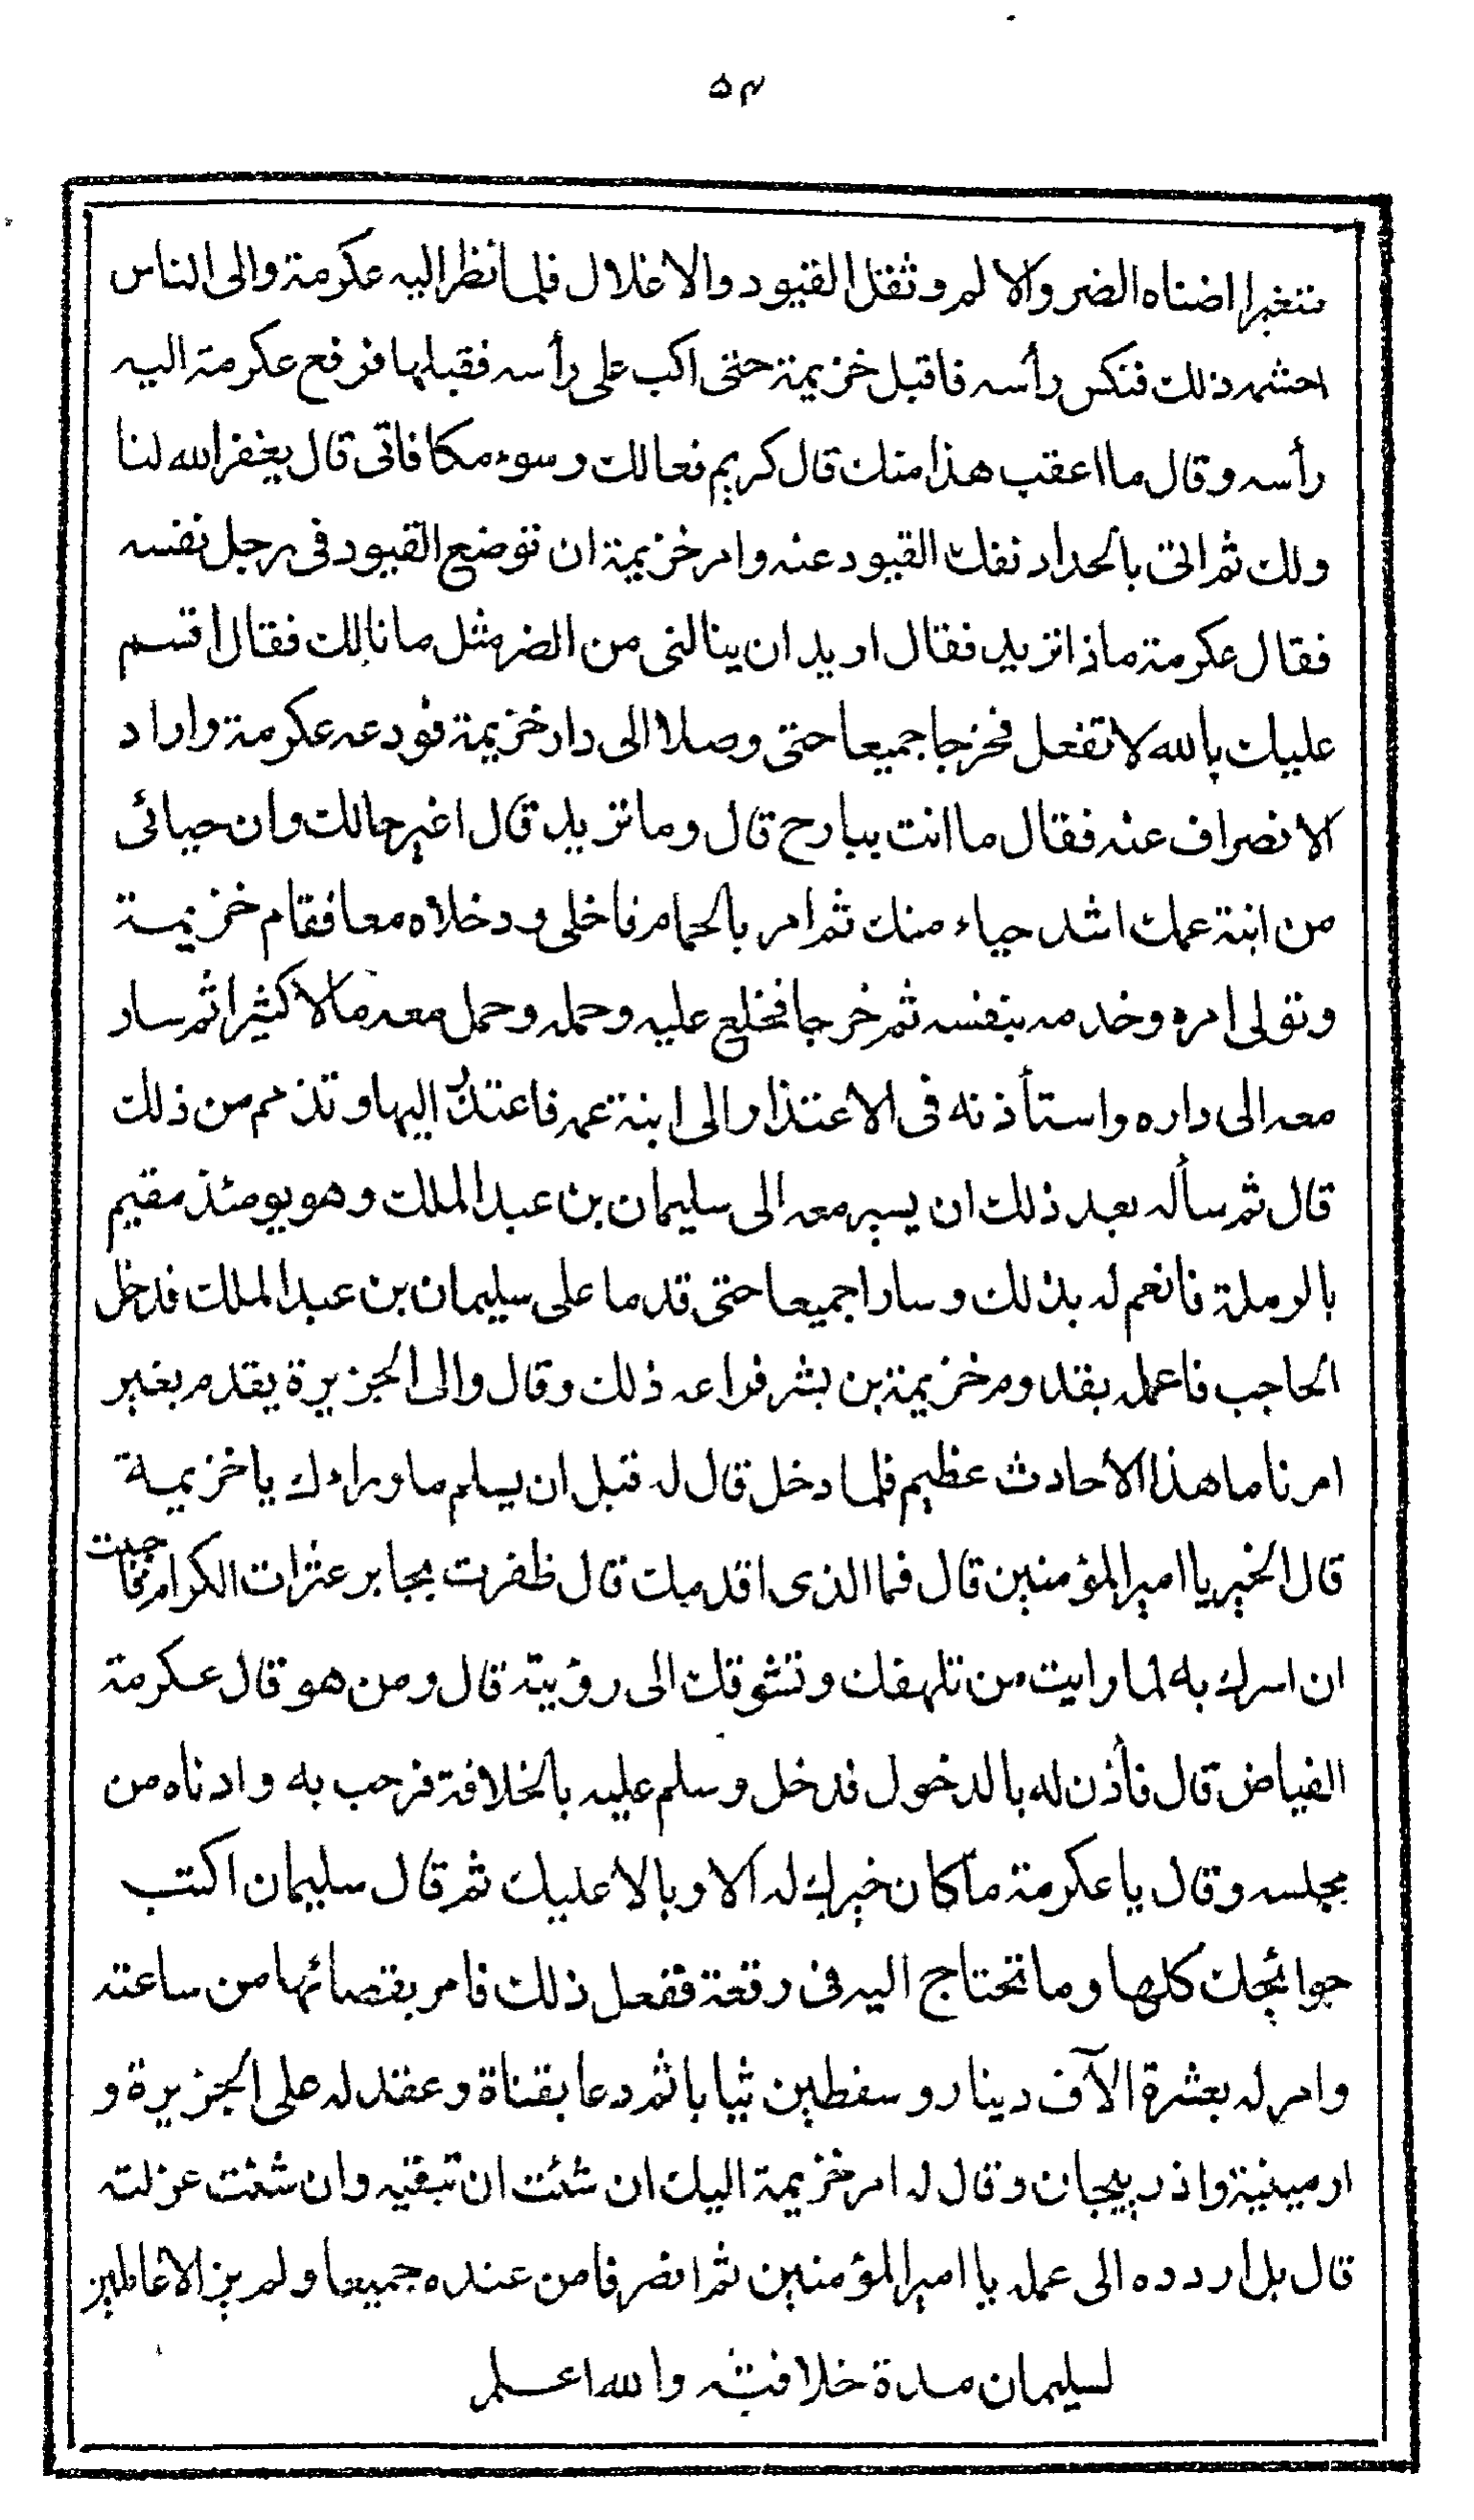 ٥٣
متغيرا اضناه الضر والالم وثقل القيود والاغلال فلما نظر اليه عكرمة والى الناس
احشمه ذلك فنكس رأسه فاقبل خزيمة حتى اكب على رأسه فقبلها فرفع عكرمة اليه
رأسه وقال ما اعقب هذا منك قال كريم فعالك وسوء مكافاتى قال يغفر الله لنا
ولك ثم اتى بالحداد نفك القيود عنه وامر خزيمة ان توضع القيود فى رجل نفسه
فقال عكرمة ماذا تريد فقال اريد ان ينالنى من الضر مثل ما نالك فقال اقسم
عليك بالله لا تفعل فخرجا جميعا حتى وصلا الى دار خزيمة فودعه عكرمة واراد
الانصراف عنه فقال ما انت ببارح قال وما تريد قال اغير حالك وان حيائى
من ابنة عمك اشد حياء منك ثم امر بالحمام فاخلى ودخلاه معا فقام خزيمة
وتولى امره وخدمه بنفسه ثم خرجا فخلع عليه وحمله وحمل معه مالا كثيرا ثم سار
معه الى داره واستأذنه فى الاعتذار الى ابنة عمه فاعتذر اليها وتذمم من ذلك
قال ثم سأله بعد ذلك ان يسير معه الى سليمان بن عبد الملك وهو يومئذ مقيم
بالرملة فانعم له بذلك وسارا جميعا حتى قدما على سليمان بن عبد الملك فدخل
الحاجب فاعلمه بقدوم خزيمة بن بشر فراعه ذلك وقال والى الجزيرة يقدم بغير
امرنا ما هذا الا حادث عظيم فلما دخل قال له قبل ان يسلم ما وراءك يا خزيمة
قال الخير يا امير المؤمنين قال فما الذى اقدمك قال ظفرت بجابر عثرات الكرام فاحببت
ان اسرك به لما رايت من تلهفك وتشوقك الى رؤيته قال ومن هو قال عكرمة
الفياض قال فأذن له بالدخول فدخل وسلم عليه بالخلافة فرحب به وادناه من
مجلسه وقال يا عكرمة ما كان خيرك له الا وبالا عليك ثم قال سليمان اكتب
حوائجك كلها وما تحتاج اليه فى رقعة ففعل ذلك فامر بقضائها من ساعته
وامر له بعشرة الآف دينار وسفطين ثيابا ثم دعا بقناة وعقد له على الجزيرة و
ارمينية واذربيجان وقال له امر خزيمة اليك ان شئت ان تبقيه وان شئت عزلته
قال بل اردده الى عمله يا امير المؤمنين ثم انصرفا من عنده جميعا ولم يزالا عاملين
لسليمان مدة خلافته والله اعلم